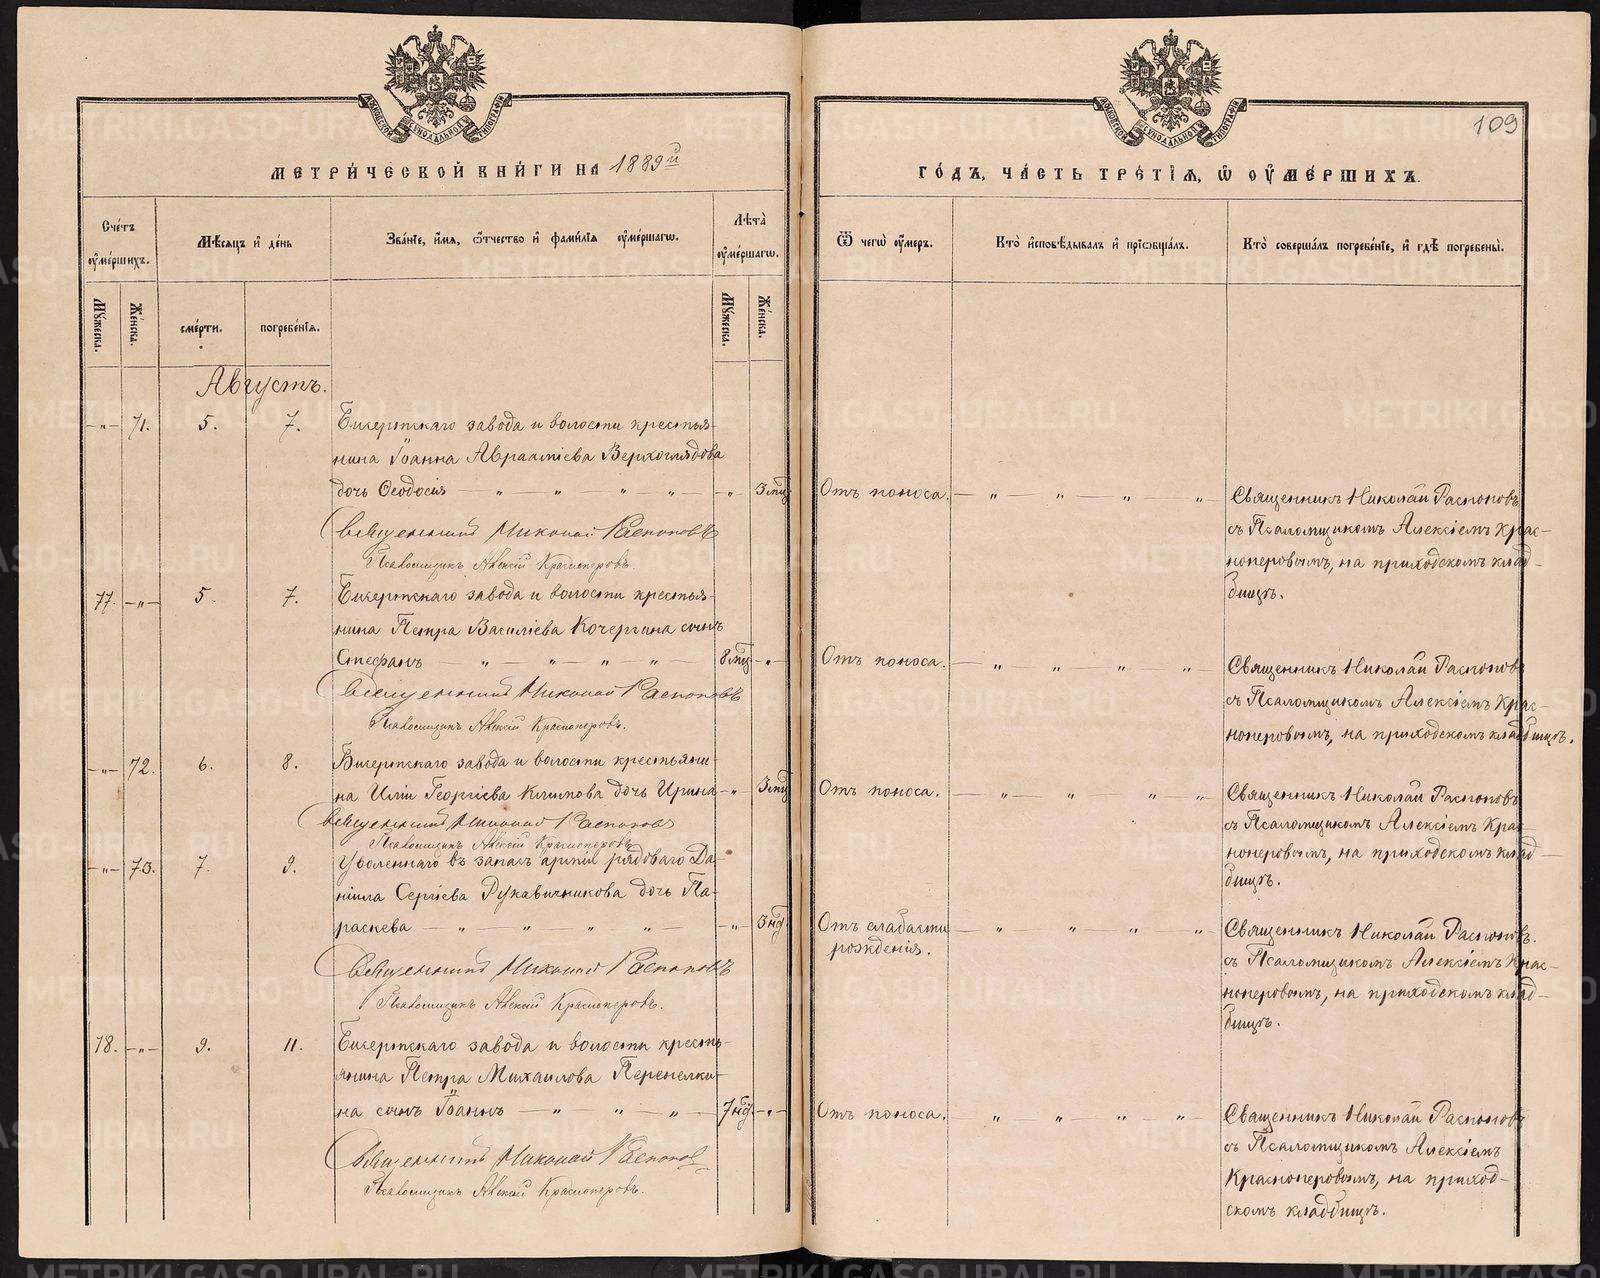 МЕТРИ́ЧЕСКОЙ КНИ́ГИ НА 1889й
Сче́тъ ᲂу҆ме́ршихъ.
Мꙋжеска.
Же́нска.
Мѣ́сяцъ и҆ де́нь
сме́рти.
погребе́нїѧ.
Зва́нїе, и҆́мѧ, ѻ҆́тчество и҆ фами́лїѧ ᲂу҆ме́ршагѡ.
Лѣта̀ ᲂу҆ме́ршагѡ.
Мꙋжеска.
Же́нска.
Августъ.
-„- 71. 5. 7. Бисертскаго завода и волости крестья-
нина Іоанна Авраамiева Верхоглядова
дочь Ѳеодосія — „ — „ — „ — „ — -„- 3 мц
Священникъ Николай Распоповъ
Псаломщикъ Алексій Красноперовъ.
77. -„- 5. 7. Бисертскаго завода и волости крестья-
нина Петра Василіева Кочергина сынъ
Стефанъ — „ — „ — „ — „ — 8 мц -„-
Священникъ Николай Распоповъ
Псаломщикъ Алексій Красноперовъ.
-„- 72. 6. 8. Бисертскаго завода и волости крестьяни-
на Иліи Георгіева Климова дочь Ирина -„- 3 мц
Священникъ Николай Распоповъ
Псаломщикъ Алексій Красноперовъ
-„- 73. 7. 9. Уволеннаго въ запасъ арміи рядоваго Да-
ніила Сергіева Рукавишникова дочь Па-
раскева — „ — „ — „ — „ — -„- 3 нд.
Священникъ Николай Распоповъ
Псаломщикъ Алексій Красноперовъ.
78. -„- 9. 11. Бисертскаго завода и волости кресть-
янина Петра Михаилова Перепелки-
на сынъ Іоаннъ — „ — „ — „ — 7 нд -„-
Священникъ Николай Распопов
Псаломщикъ Алексій Красноперовъ.
109
ГО́ДЪ, ЧА́СТЬ ТРЕ́ТЇѦ, Ѽ ОУ҆МЕ́РШИХЪ.
Ѿ чегѡ̀ ᲂу҆́меръ.
Кто̀ и҆сповѣ́дывалъ и҆ прїѡбща́лъ.
Кто̀ соверша́лъ погребе́нїе, и҆ гдѣ̀ погребены̀.
Отъ поноса. — „ — „ — „ — „ Священникъ Николай Распоповъ
съ Псаломщикомъ Алексіемъ Крас-
ноперовымъ, на приходскомъ клад-
бищѣ.
Отъ поноса. — „ — „ — „ — „ Священникъ Николай Распоповъ
съ Псаломщикомъ Алексіемъ Крас-
ноперовымъ, на приходскомъ кладбищѣ.
Отъ поноса. — „ — „ — „ — „ Священникъ Николай Распоповъ
съ Псаломщикомъ Алексіемъ Крас-
ноперовымъ, на приходскомъ клад-
бищѣ.
Отъ слабости — „ — „ — „ — „ Священникъ Николай Распоповъ.
рожденія.
съ Псаломщикомъ Алексіемъ Крас-
ноперовымъ, на приходскомъ клад-
бищѣ.
Отъ поноса. — „ — „ — „ — „ Священникъ Николай Распоповъ
съ Псаломщикомъ Алексіемъ
Красноперовымъ, на приход-
скомъ кладбищѣ.
METRIKI.GASO-URAL.RU